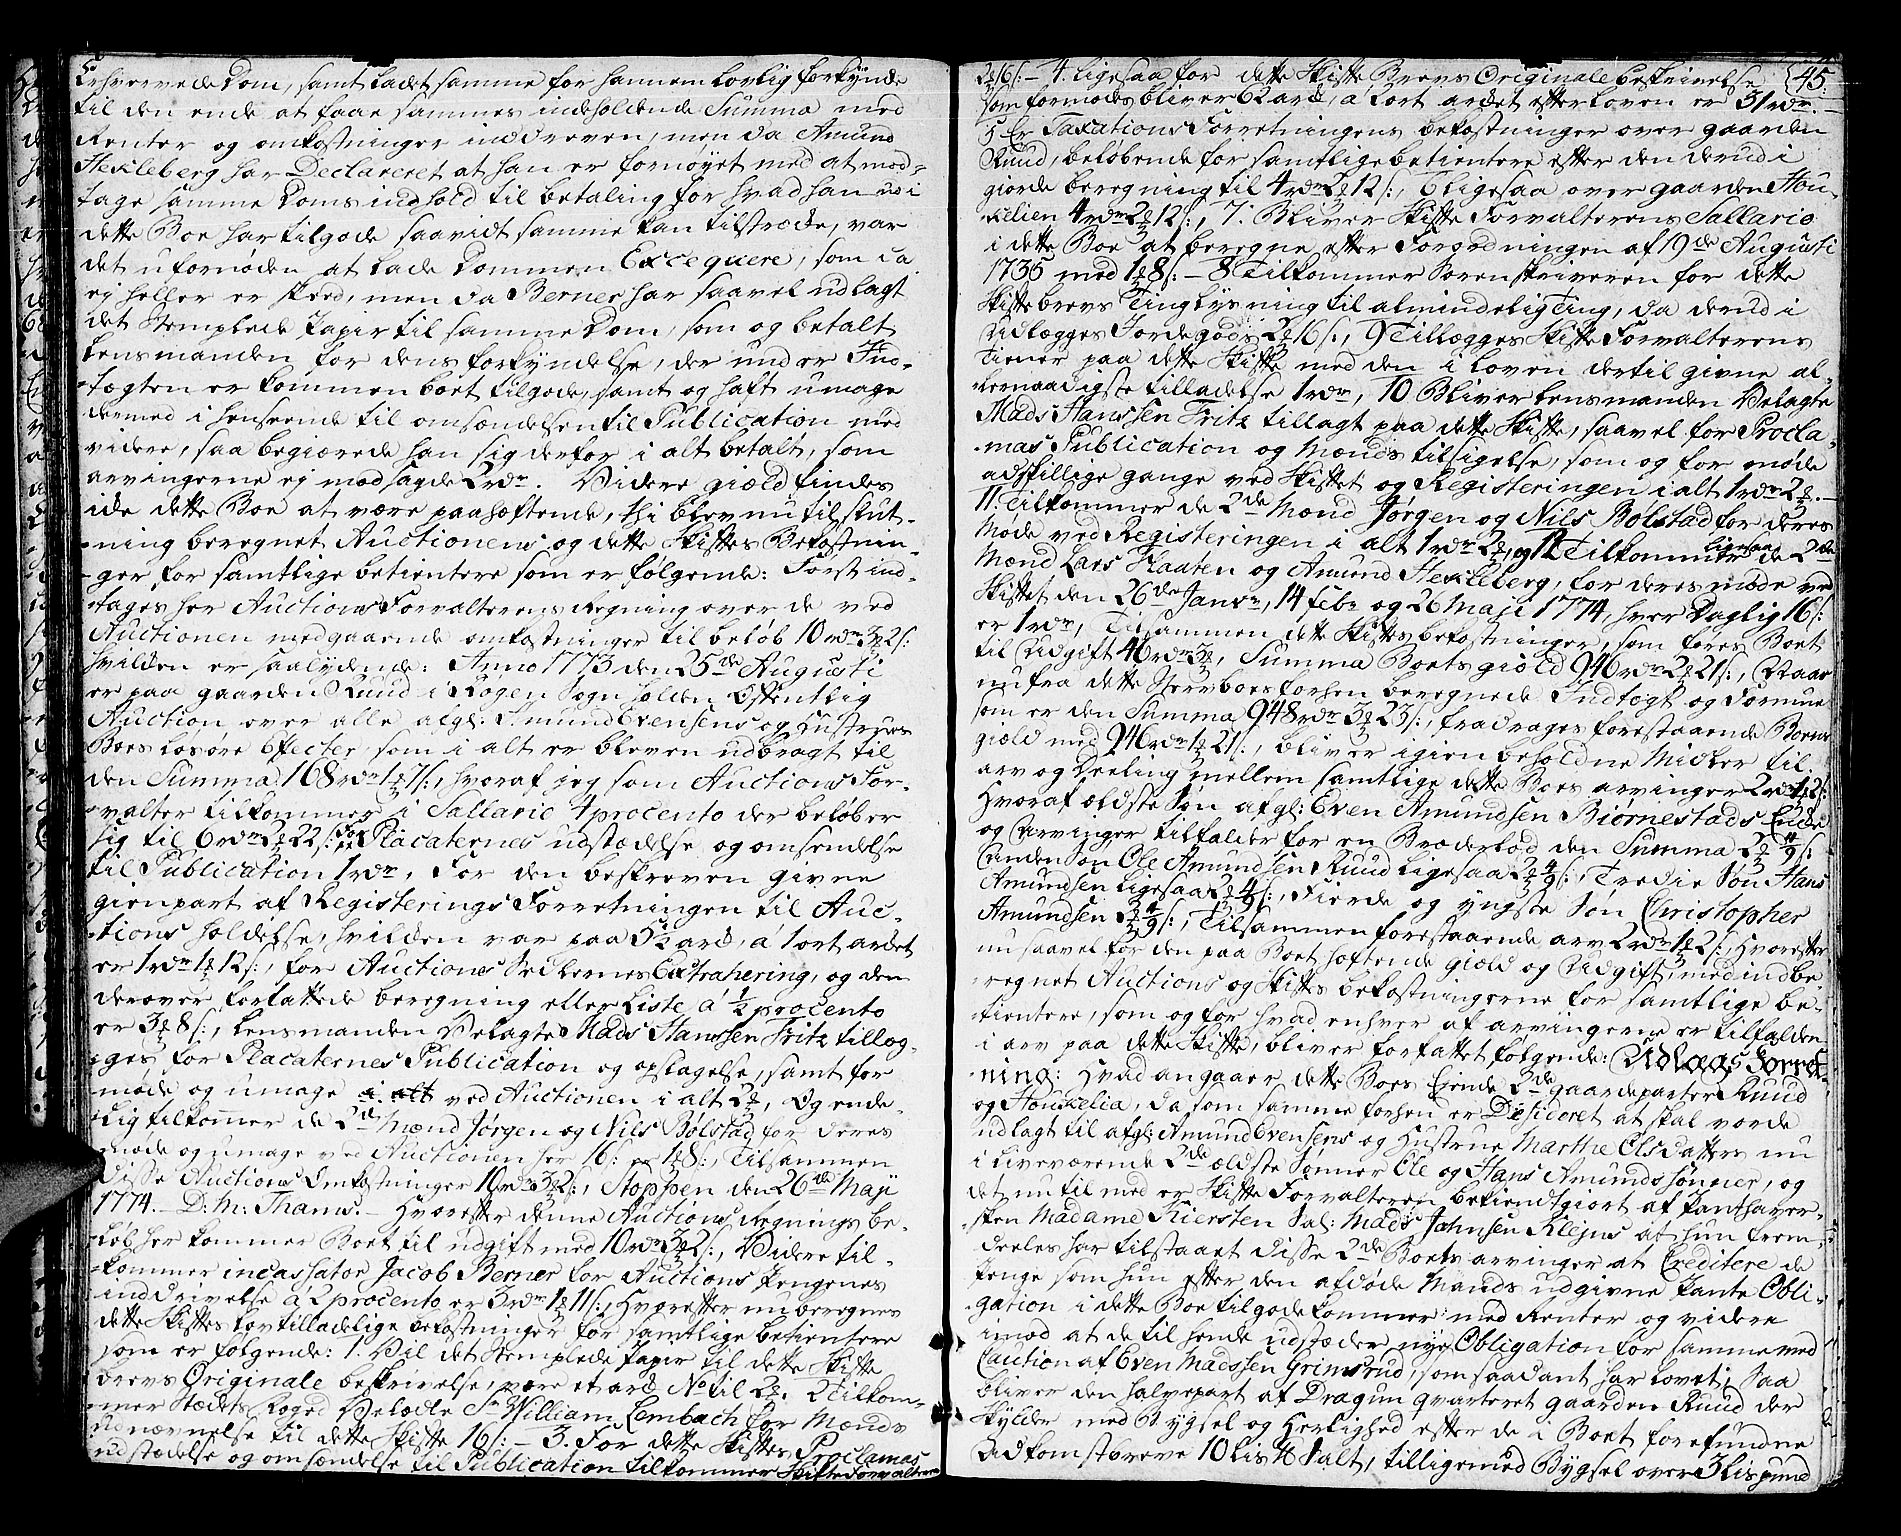 Erhvervede Dom, samt ladet samme for hannem lovlig forkynde
til den ende at faae sammes indeholdende Summa med
Renter og omkostninger inddreven, men da Amund
Hekleberg har Declareret at han er fornøyet med at mod-
tage samme Doms indhold til betaling for hvad han i
dette Boe har tilgode saavidt samme kan tilstræcke, var
det ufornøden at lade Dommen Exceqvere, som ia
ej heller er skeed, men da Berner har saavel udlagt
det Stemplede Papir til samme Dom, som og betalt
Lensmanden for dens forkyndelse, der under Ind-
tægten er kommen boet tilgode, samt og haft umage
dermed i henseende til omsendelsen til Publication med
videre, saa begiærede han sig derfor i alt betalt, som
arvingerne ej modsagde 2rdr. Videre giæld findes
icke dette Boe at være paahæftende, thi blev nu til slut-
ning beregnet Auctionens og dette Skiftes Bekostnin-
ger for samtlige betientere som er følgende: Først ind-
tages her Auctions Forvalterens Regning over de ved
Auctionen medgaaende omkostninger til beløb 10rdr 3 2s:
hvilden er saalydende: Anno 1773 den 25de Augusti
er paa gaarden Ruud i Røgen Sogn holden Offentlig
Auction over alle afgl: Amund Evensens og Hustrues
Boes løsøre Efecter, som i alt er bleven udbragt til
den Summa 168rdr 1 7s:, hvoraf jeg som Auctions For-
valter tilkommer i Sallarie 4 procento der beløber
sig til 6rdr 2 22s: For Placaternes udstædelse og omsendelse
til Publication 1rdr, For den beskreven givne
gienpart af Registerings Forretningen til Auc-
tions holdelse, hvilden var paa 5½ ark, á 1 ort arket
er 1rdr 1 12s:, for Auctions Sedlernes Extrahering, og den
derover forfattede beregning eller Liste á ½ procento
er 3 8s:, Lensmanden Velagte Mads Hanssen Fritz tillæg-
ges for Placaternes Publication og opslagelse, samt for
møde og umage i alt ved Auctionen i alt 2, Og ende-
lig tilkommer de 2de Mænd Jørgen og Nils Bølstad for deres
møde og umage ved Auctionen hver 16s: er 1 8s:, Tilsammen
Disse Auctions Omkostninger 10rdr 3 2s:, Stoppen den 26de Maji
1774. – D: M: Thams. – Hvorefter denne Auctions Regnings be-
løb her kommer Boet til udgift med 10rdr 3 2s:, Videre til-
kommer incassator Jacob Berner for Auctions Pengenes
inddrivelse á 2 procento er 3rdr 1 11s:, Hvorefter nu beregnes
dette Skiftes lovtilladelige bekostninger for samtlige betientere
som er følgende: 1. Vil det Stemplede Papir til dette Skifte
brevs Originale beskrivelse, være et ark No til 2. 2 Tilkom-
mer Stædets Foged Velædle Sr William Lembach for Mænds
udnævnelse til dette Skifte 16s: – 3. For dette Skiftes Proclamas
udstædelse og omsændelse til Publication tilkommer Skifte Forvalteren
45.
2 16s: – 4. ligesaa for dette Skifte Brevs Originale beskrivelse
som formodes bliver 62 ark, á 1 ort arket efter loven er 31rdr
5 Er Taxations Forretningens bekostninger over gaarden
Ruud, beløbende for samtlige betientere efter den derudi
giorde beregning til 4rdr 2 12s:, 6 ligesaa over gaarden Hou-
kelien 4rdr 2 12s:, 7. Bliver Skifte Forvalterens Sallario
i dette Boe at beregne efter Forordningen af 19de Augusti
1735 med 1 8s: – 8 Tilkommer Sorenskriveren for dette
Skiftebrevs Tinglysning til almindelig Ting, da derudi
Udlægges Jordegods 2 16s:, 9 Tillægges Skifte Forvalterens
Tiener paa dette Skifte med den i Loven dertil givne al-
lernaadigste tilladelse 1rdr, 10 Bliver Lensmanden Velagte
Mads Hanssen Fritz tillagt paa dette Skifte, saavel for Procla-
mas Publication og Mænds tilsigelse, som og for møde
adskillige gange ved Skiftet og Registeringen i alt 1rdr 2. –
11. Tilkommer de 2de Mænd Jørgen og Nils Bølstad for deres
Møde ved Registeringen i alt 1rdr 2, og 12 Tilkommer ligesaa de 2de
Mænd Lars Haaten og Amund Hekleberg, for deres møde ved
Skiftet den 26de Janv, 14 febr og 26 Maji 1774, hver Daglig 16s:
er 1rdr, Tilsammen dette Skiftes bekostninger, som føres Boet
til Udgift 46rdr 3, Summa Boets giæld 946rdr 2 21s:, Naar
nu fra dette Stervboes forhen beregnede Indtægt og Formue
som er den Summa 948rdr 3 23s:, fradrages forestaaende Boens
giæld med 946rdr 1 21s:, bliver igien beholdne Midler til
arv og Deeling mellem samtlige dette Boes arvinger 2rdr 1 2s:
Hvoraf ældste Søn afgl: Even Amundsen Biørnestads Encke
og Arvinger tilfalder for en Broderlod den Summa 2 4/9s:
Anden Søn Ole Amundsen Ruud ligesaa 2 4/9s:, Tredie Søn Hans
Amundsen ligesaa 2 4/9s:, Fierde og yngste Søn Christopher
Amundsen 2 4/9s:, Tilsammen forestaaende arv 2rdr 1 2s:, Hvorefter
nu saavel for den paa Boet hæftende giæld og Udgift, med indbe-
regnet Auctions og Skiftes bekostningerne for samtlige be-
tientere, som og for hvad enhver af arvingerne er tilfalden
i arv paa dette Skifte, bliver forfattet følgende: Udlægs Forret-
ning: Hvad angaaer dette Boes Ejende 2de gaardeparter Ruud
og Houkelia, da som samme forhen er Desideret at skal vorde
udlagt til afgl: Amund Evensens og Hustrue Marthe Olsdatters nu
i liveværende 2de ældste Sønner Ole og Hans Amundssønner, og
det nu til med er Skifte Forvalteren bekiendtgiort af Panthaver-
sken Madame Kiersten Sal: Mads Jahnsen Klejns at hun frem-
deeles har tilstaaet disse 2de Boets arvinger at Creditere de
Penge som hun efter den afdøde Mands udgivne Pante Obli-
gation i dette Boe tilgodekommer med Renter og videre
imod at de til hende udstæder nye Obligation for samme ved
Caution af Even Madssen Grimsrud, som saadant har lovet; Saa
bliver den halvepart af Dragun qvarteret gaarden Ruud der
skylder med Bygsel og Herlighed efter de i Boet forefundne
Adkomstbreve 10 Lis ℔ Salt, tilligemed Bygsel over 3 Lispund